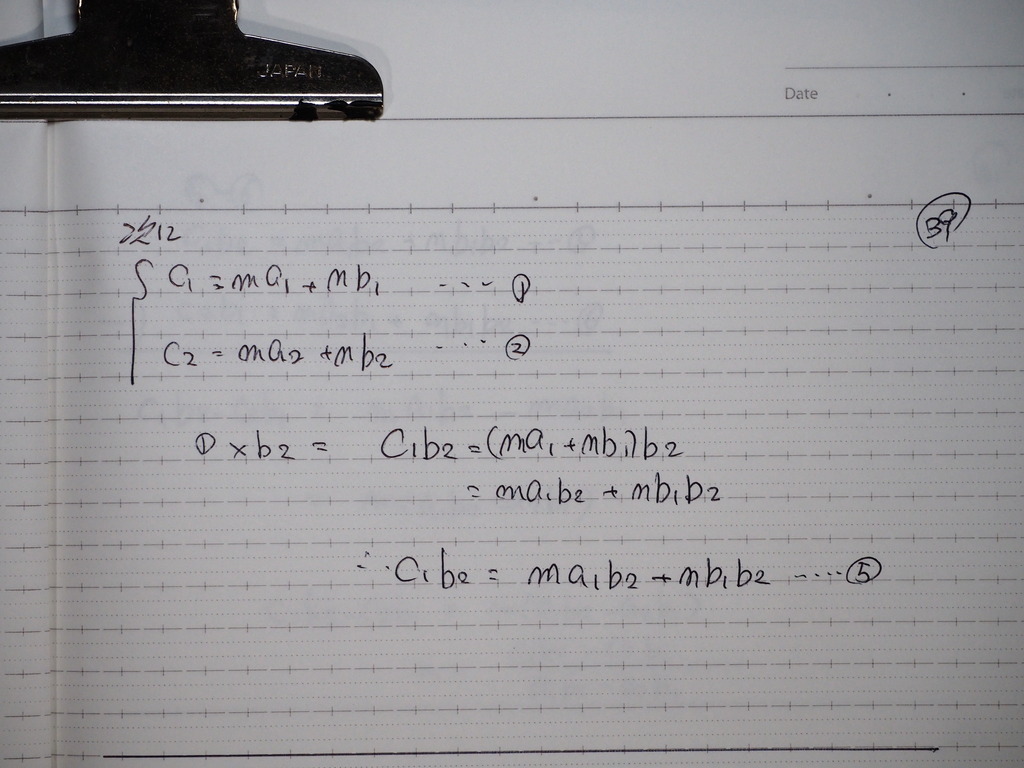 JAPAN
Date
39
次に
C₁ = ma₁ + nb₁ ---- ①
C₂ = ma₂ + nb₂ ---- ②
① × b₂ = C₁b₂ = (ma₁ + nb₁)b₂
= ma₁b₂ + nb₁b₂
∴ C₁b₂ = ma₁b₂ + nb₁b₂ ----- ⑤